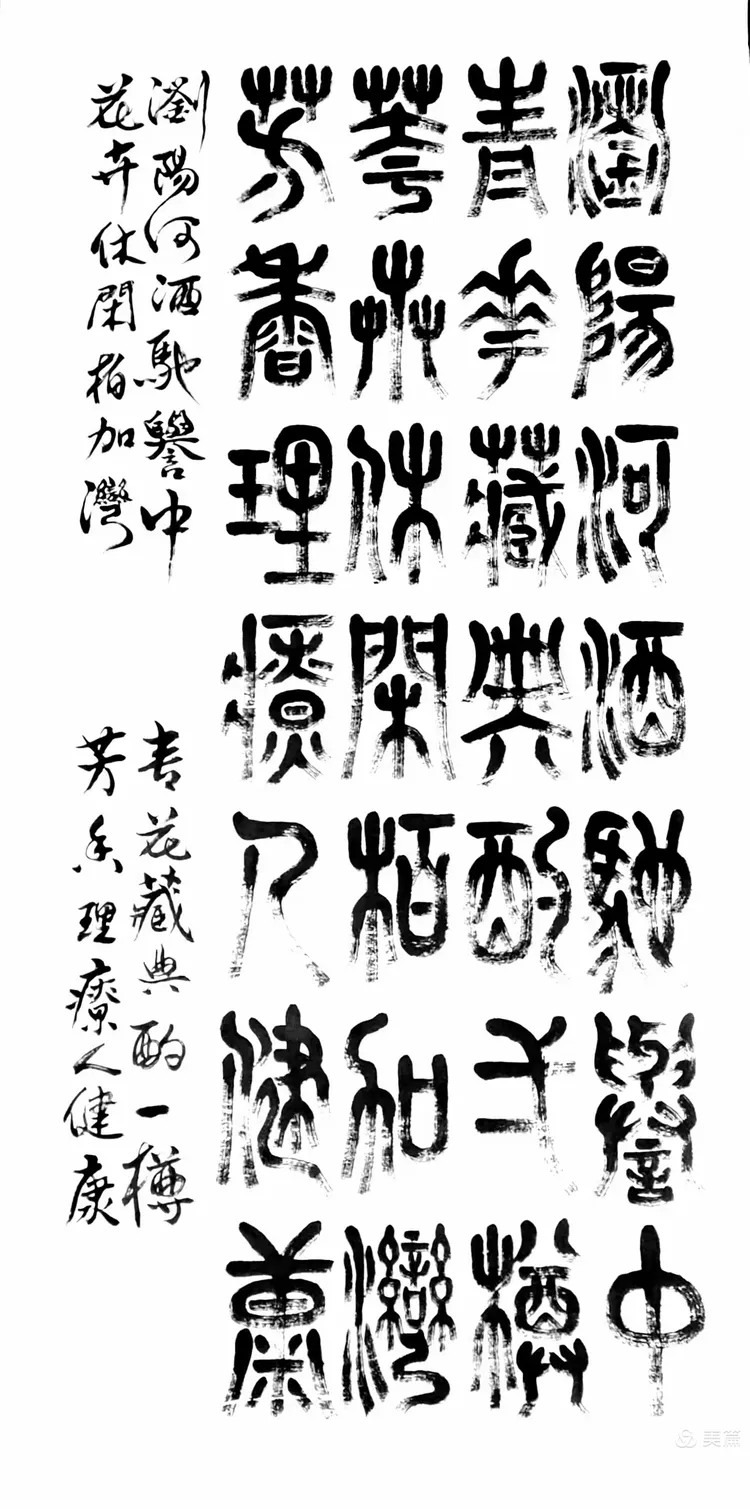 瀏陽河酒馳譽中
青花藏典酌弌樽
華卉休閑柏加灣
芳香理療人健康
瀏陽河酒馳譽中
花卉休閑柏加灣
青花藏典酌一樽
芳香理療人健康
美篇